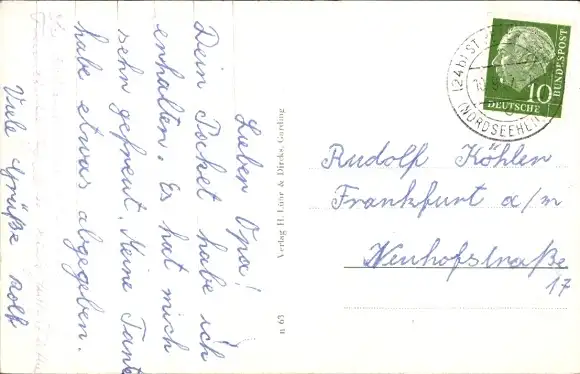 Lieben Opa!
Dein Packet habe ich
enhalten. Es hat mich
sehn gefreut. Meine Tante
habe etwas abgegeben.
Viele Grüße Rolf
Verlag H. Lühr & Dircks, Garding
n 63
(24b) ST
(NORDSEEHEI
10
DEUTSCHE
BUNDESPOST
Rudolf Köhlen
Frankfurt a/m
Neuhofstraße
17